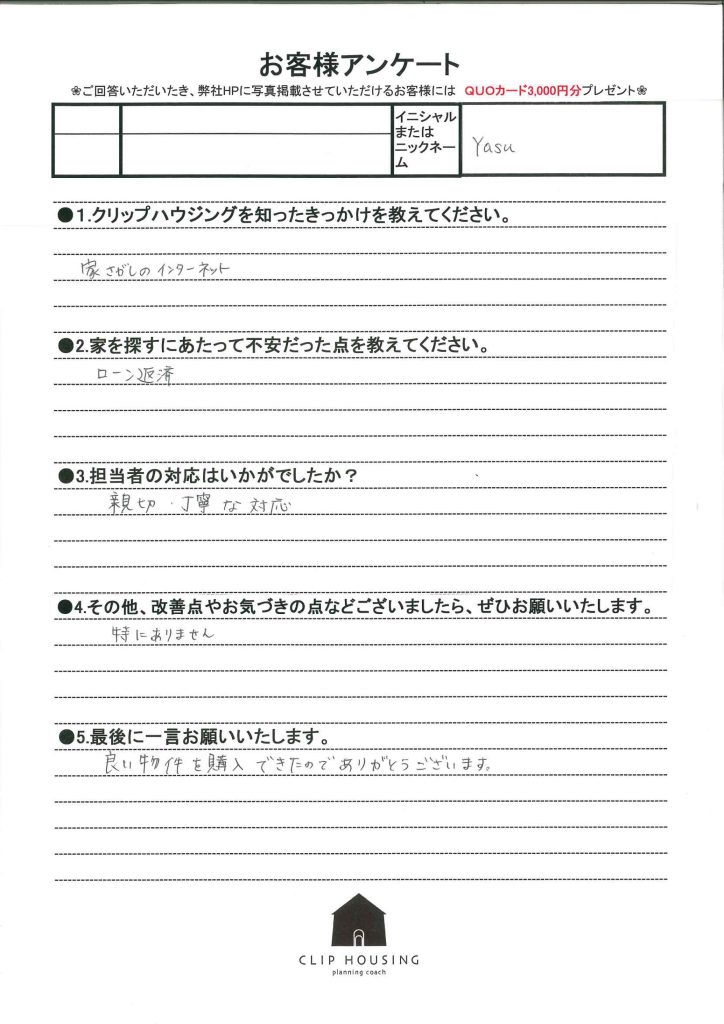 お客様アンケート
❀ご回答いただいたき、弊社HPに写真掲載させていただけるお客様には QUOカード3,000円分プレゼント❀
イニシャル
または
ニックネー
ム
Yasu
●1.クリップハウジングを知ったきっかけを教えてください。
家さがしのインターネット
●2.家を探すにあたって不安だった点を教えてください。
ローン返済
●3.担当者の対応はいかがでしたか？
親切・丁寧な対応
●4.その他、改善点やお気づきの点などございましたら、ぜひお願いいたします。
特にありません
●5.最後に一言お願いいたします。
良い物件を購入できたのでありがとうございます。
CLIP HOUSING
planning coach